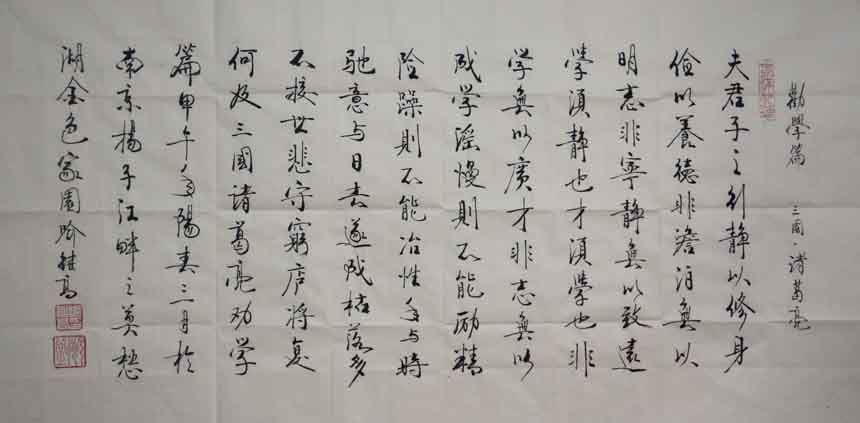 勸學篇 三国·诸葛亮
夫君子之行静以修身
俭以養德非澹泊無以
明志非寧静無以致遠
学須静也才須學也非
学無以廣才非志無以
成学滛慢則不能励精
险躁則不能冶性年与時
驰意与日去遂成枯落多
不接世悲守窮庐将复
何及三國诸葛亮劝学
篇甲午年陽春三月於
南京揚子江畔之莫愁
湖金色家園